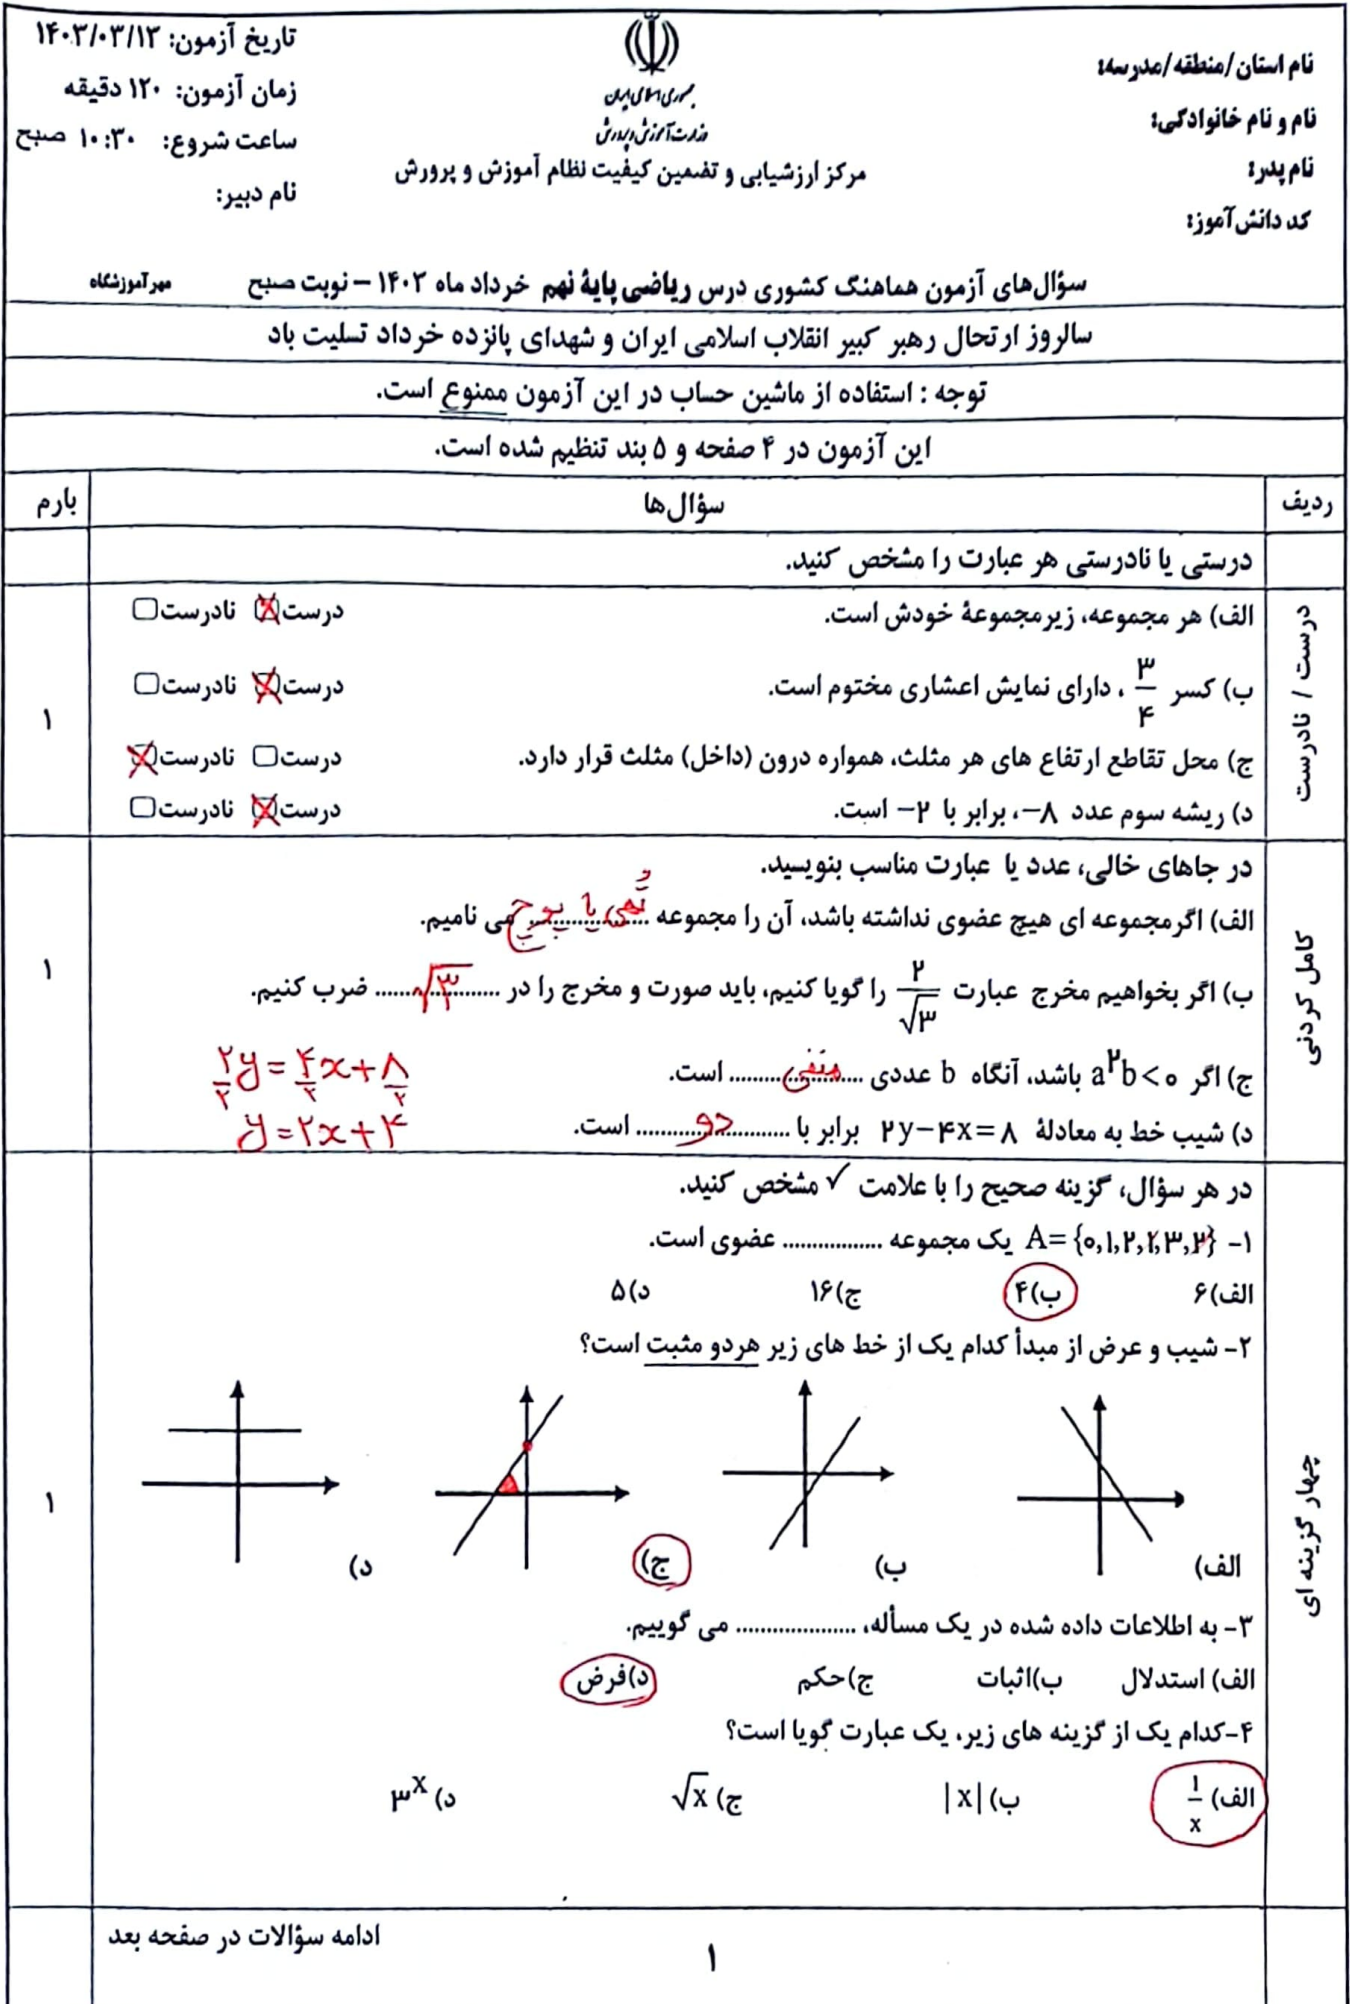 نام استان/منطقه/مدرسه:
نام و نام خانوادگی:
نام پدر:
کد دانش‌آموز:
جمهوری اسلامی ایران
وزارت آموزش و پرورش
مرکز ارزشیابی و تضمین کیفیت نظام آموزش و پرورش
تاریخ آزمون: ۱۴۰۳/۰۳/۱۳
زمان آزمون: ۱۲۰ دقیقه
ساعت شروع: ۱۰:۳۰ صبح
نام دبیر:
سؤال‌های آزمون هماهنگ کشوری درس ریاضی پایهٔ نهم خرداد ماه ۱۴۰۳ – نوبت صبح
مهر آموزشگاه
سالروز ارتحال رهبر کبیر انقلاب اسلامی ایران و شهدای پانزده خرداد تسلیت باد
توجه : استفاده از ماشین حساب در این آزمون ممنوع است.
این آزمون در ۴ صفحه و ۵ بند تنظیم شده است.
ردیف سؤال‌ها بارم
درستی یا نادرستی هر عبارت را مشخص کنید.
درست / نادرست
الف) هر مجموعه، زیرمجموعهٔ خودش است. درست نادرست
ب) کسر ۳/۴ ، دارای نمایش اعشاری مختوم است. درست نادرست
۱
ج) محل تقاطع ارتفاع های هر مثلث، همواره درون (داخل) مثلث قرار دارد. درست نادرست
د) ریشه سوم عدد ۸−، برابر با ۲− است. درست نادرست
کامل کردنی
در جاهای خالی، عدد یا عبارت مناسب بنویسید.
الف) اگر مجموعه ای هیچ عضوی نداشته باشد، آن را مجموعه تهی یا پوچ می نامیم.
۱
ب) اگر بخواهیم مخرج عبارت ۲/√۳ را گویا کنیم، باید صورت و مخرج را در √۳ ضرب کنیم.
ج) اگر a²b<۰ باشد، آنگاه b عددی منفی است.
۲y/۲ = ۴x/۲ + ۸/۲
د) شیب خط به معادلهٔ ۲y−۴x=۸ برابر با دو است.
y=۲x+۴
چهار گزینه ای
در هر سؤال، گزینه صحیح را با علامت ✓ مشخص کنید.
۱- A={۰,۱,۲,۲,۳,۳} یک مجموعه ................ عضوی است.
الف)۶ ب)۴ ج)۱۶ د)۵
۲- شیب و عرض از مبدأ کدام یک از خط های زیر هردو مثبت است؟
۱
الف) ب) ج) د)
۳- به اطلاعات داده شده در یک مسأله، .................... می گوییم.
الف) استدلال ب)اثبات ج)حکم د)فرض
۴-کدام یک از گزینه های زیر، یک عبارت گویا است؟
الف) ۱/x ب) |x| ج) √x د) ۳ˣ
ادامه سؤالات در صفحه بعد
۱